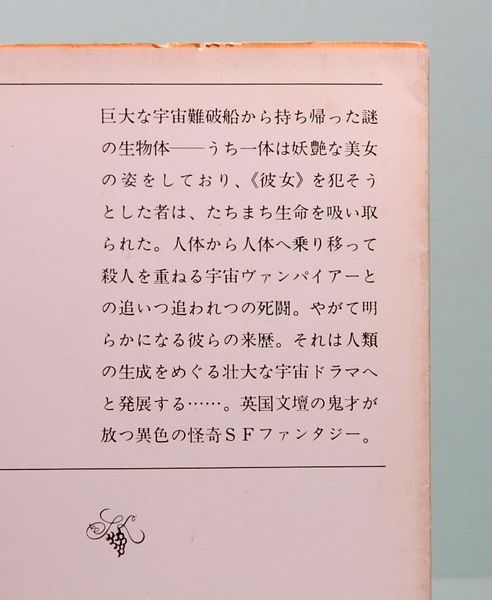 巨大な宇宙難破船から持ち帰った謎
の生物体――うち一体は妖艶な美女
の姿をしており、《彼女》を犯そう
とした者は、たちまち生命を吸い取
られた。人体から人体へ乗り移って
殺人を重ねる宇宙ヴァンパイアーと
の追いつ追われつの死闘。やがて明
らかになる彼らの来歴。それは人類
の生成をめぐる壮大な宇宙ドラマへ
と発展する……。英国文壇の鬼才が
放つ異色の怪奇ＳＦファンタジー。